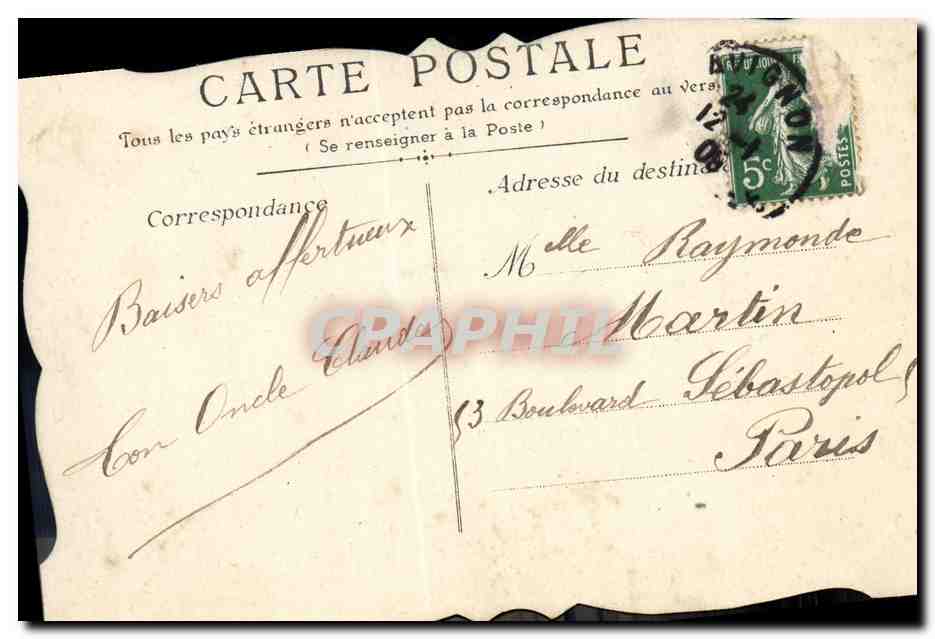 CARTE POSTALE
Tous les pays étrangers n'acceptent pas la correspondance au vers
( Se renseigner à la Poste )
Correspondance
Baisers affectueux
Ton Oncle Claudes
Adresse du destina
Mlle Raymonde
Martin
53 Boulevard Sébastopol
Paris
AVIGNON
24
12 -1
08
5c
POSTES
CRAPHIL